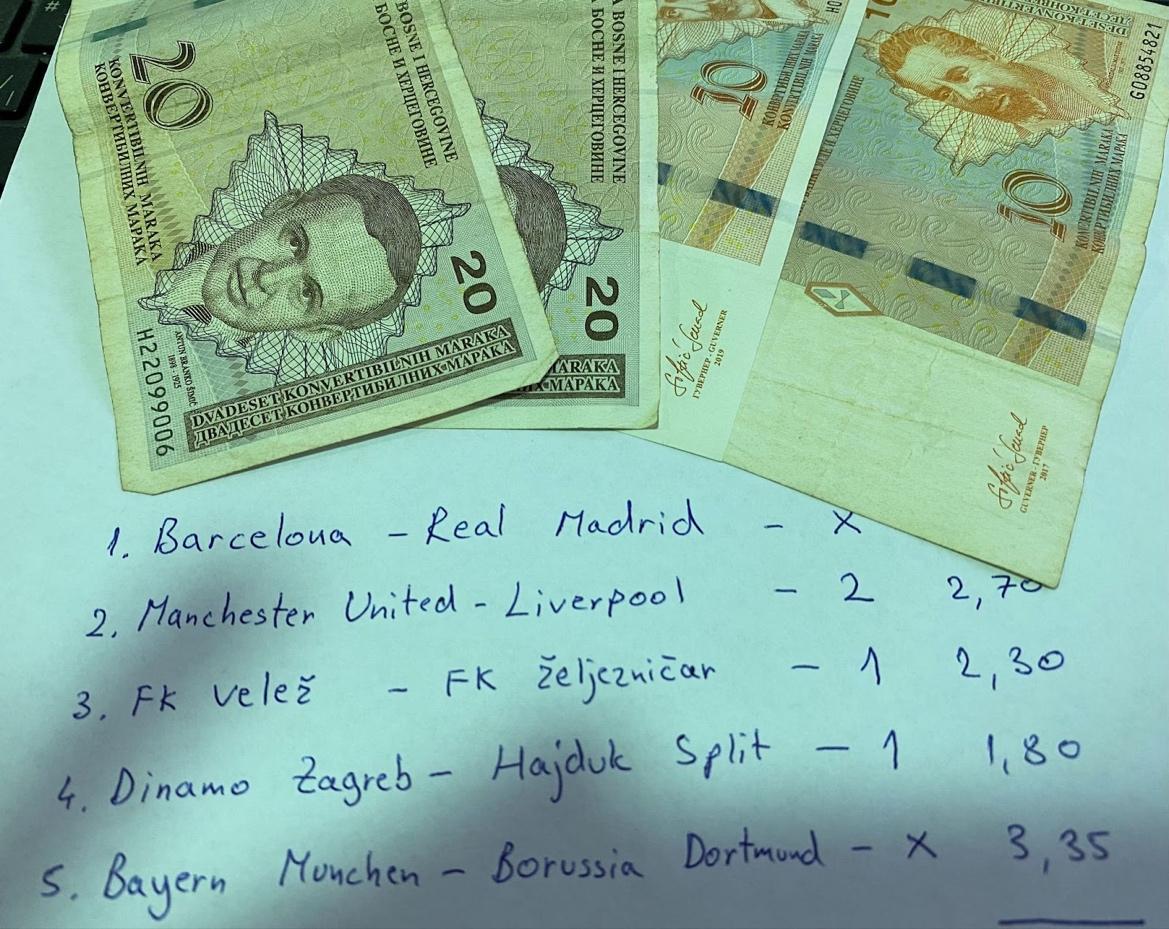 20
KONVERTIBILNIH MARAKA
КОНВЕРТИБИЛНИХ МАРАКА
BOSNE I HERCEGOVINE
БОСНЕ И ХЕРЦЕГОВИНЕ
20
H22099006
ANTUN BRANKO ŠIMIĆ
1898 - 1925
DVADESET KONVERTIBILNIH MARAKA
ДВАДЕСЕТ КОНВЕРТИБИЛНИХ МАРАКА
A BOSNE I HERCEGOVINE
БОСНЕ И ХЕРЦЕГОВИНЕ
20
MARAKA
ИХ МАРАКА
10
КОНВЕРТИБИЛНИХ МАРАКА
KONVERTIBILNIH MARAKA
H0
ГУВЕРНЕР - GUVERNER
2019
10
DESET KONVERTI
ДЕСЕТ КОНВ
G08854821
И ХЕРЦЕГОВИНЕ
10
KONVERTIBILNIH MARAKA
КОНВЕРТИБИЛНИХ МАРАКА
GUVERNER - ГУВЕРНЕР
2017
1. Barcelona - Real Madrid - X
2. Manchester United - Liverpool - 2 2,70
3. FK Velež - FK Željezničar - 1 2,30
4. Dinamo Zagreb - Hajduk Split - 1 1,80
5. Bayern Munchen - Borussia Dortmund - X 3,35